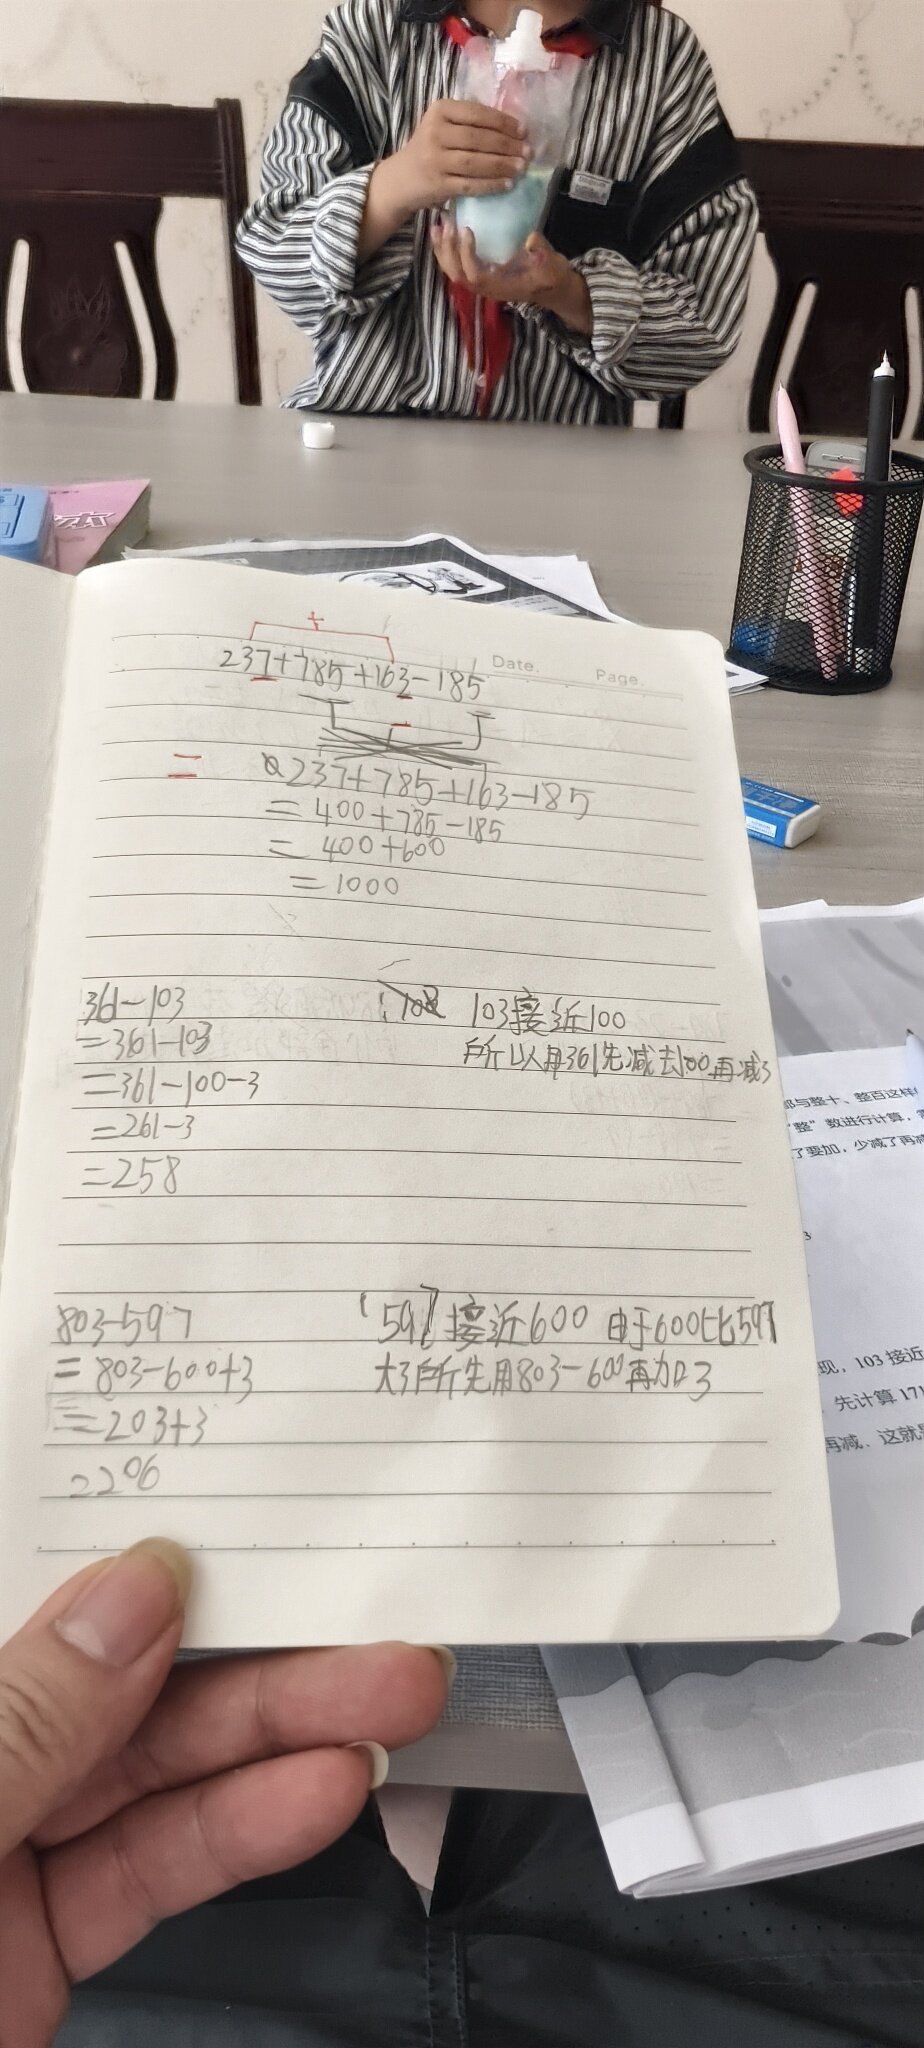 +
237+785+163-185
Date. Page.
=
237+785+163-185
=400+785-185
=400+600
=1000
361-103
103接近100
=361-103
所以用361先减去100再减3
=361-100-3
=261-3
=258
803-597
597接近600 由于600比597
=803-600+3
大3所先用803-600再加3
=203+3
=206
本
都与整十、整百这样
"整"数进行计算,
了要加,少减了再减
3
现,103接近
先计算171
再减、这就是